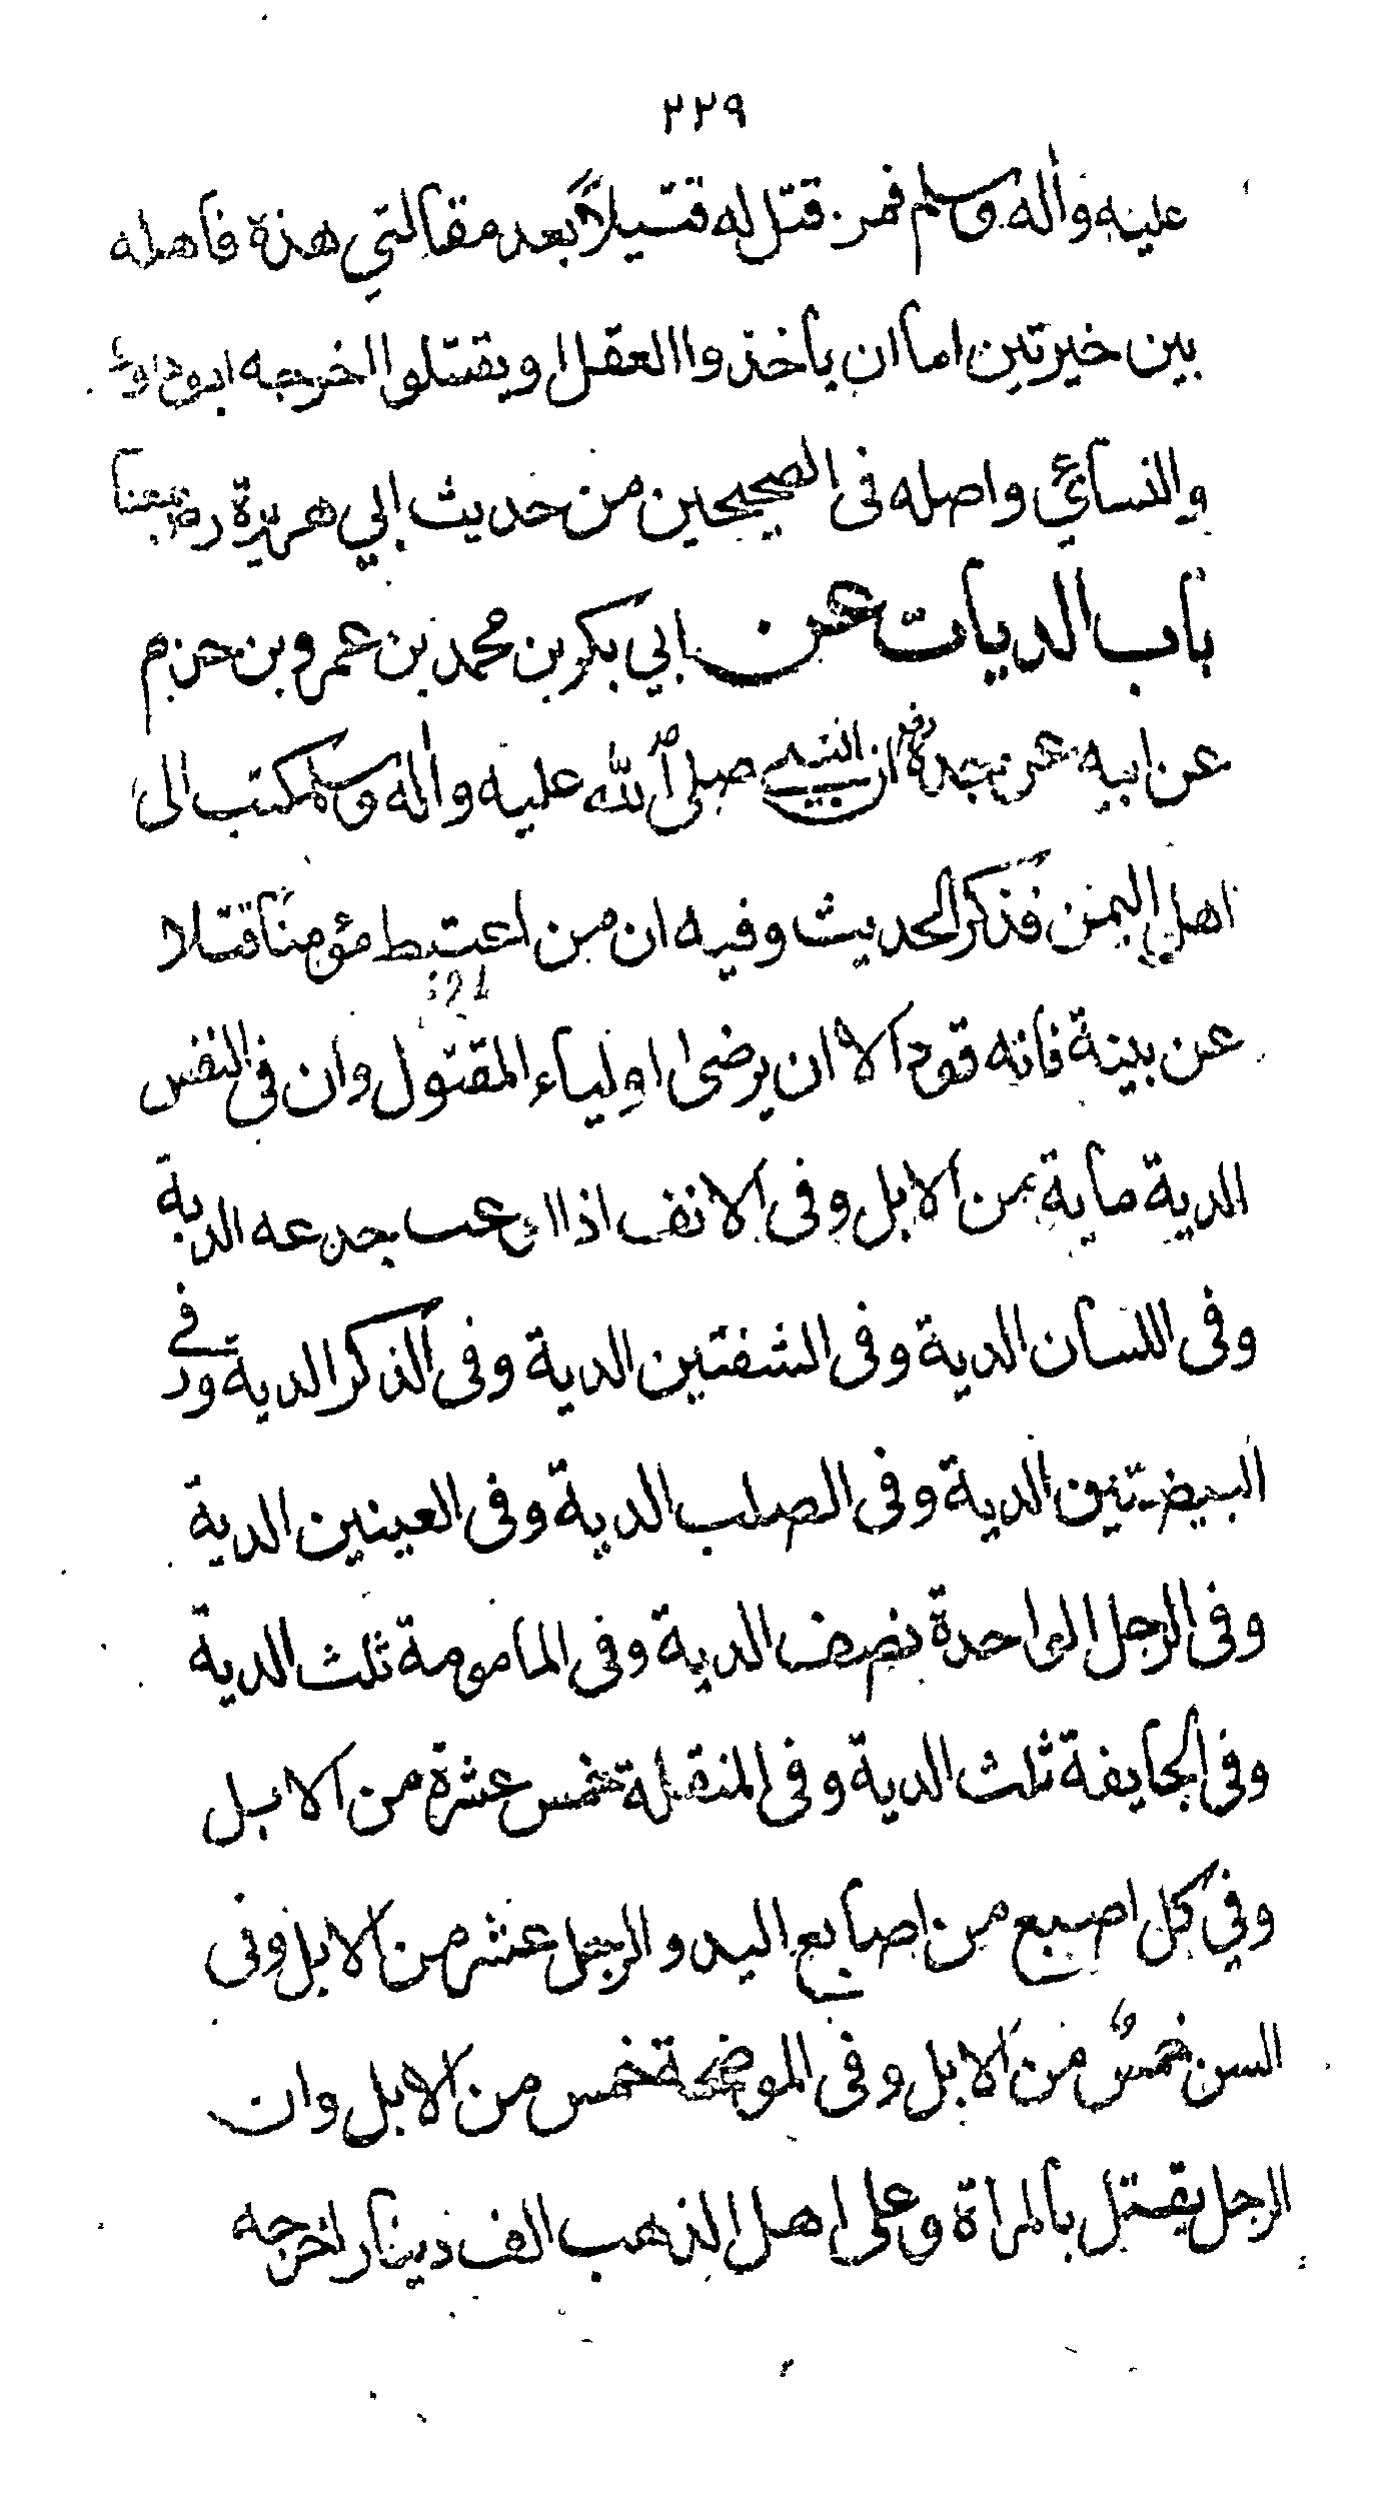 ٢٢٩
عليه واله وسلم فمن قتل له قتيلاً بعد مقالتي هذه فاهله
بين خيرتين اما ان ياخذوا العقل او يقتلوا اخرجه ابوداود
والنسائي واصله فى الصحيحين من حديث ابي هريرة بمعناه
باب الديات عن ابي بكر بن محمد بن عمرو بن حزم
عن ابيه عن جده ان النبي صلى الله عليه واله وسلم كتب الى
اهل اليمن فذكر الحديث وفيه ان من اعتبط مؤمنا قتلا
عن بينة فانه قود الا ان يرضى اولياء المقتول وان فى النفس
الدية ماية من الابل وفى الانف اذا ادعب جدعه الدية
وفى اللسان الدية وفى الشفتين الدية وفى الذكر الدية وفي
البيضتين الدية وفى الصلب الدية وفى العينين الدية
وفى الرجل الواحدة نصف الدية وفى المامومة ثلث الدية
وفى الجايفة ثلث الدية وفى المنقلة خمس عشرة من الابل
وفي كل اصبع من اصابع اليد والرجل عشر من الابل وفى
السن خمسٌ من الابل وفى الموضحة خمس من الابل وان
الرجل يقتل بالمراة وعلى اهل الذهب الف دينار اخرجه